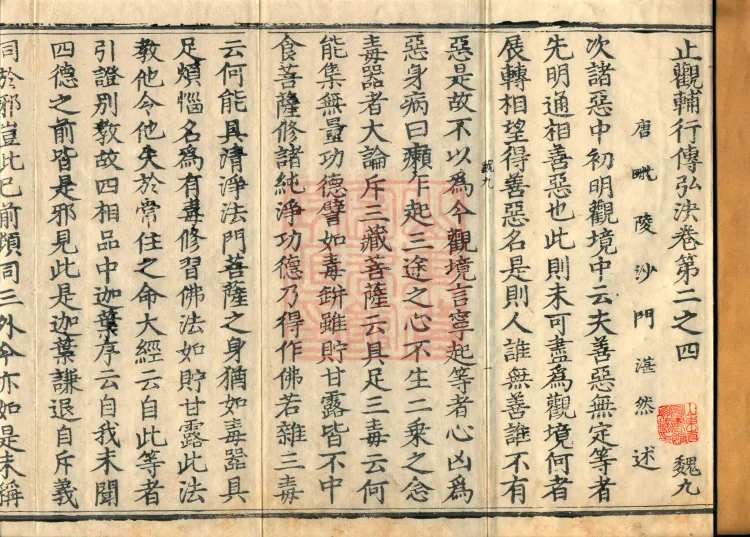 止觀輔行傳弘決卷第二之四
魏九
唐毗陵沙門湛然述
次諸惡中初明觀境中云夫善惡無定等者
先明通相善惡也此則未可盡為觀境何者
展轉相望得善惡名是則人誰無善誰不有
魏九
惡是故不以為今觀境言寧起等者心凶為
惡身病曰癩乍起三途之心不生二乘之念
毒器者大論斥三藏菩薩云具足三毒云何
能集無量功德譬如毒缾雖貯甘露皆不中
食菩薩修諸純淨功德乃得作佛若雜三毒
云何能具清淨法門菩薩之身猶如毒器具
足煩惱名為有毒修習佛法如貯甘露此法
教他令他失於常住之命大經云自此等者
引證別教故四相品中迦葉存云自我未聞
四德之前皆是邪見此是迦葉謙退自斥義
同於邪豈此已前類同三外今亦如是未稱